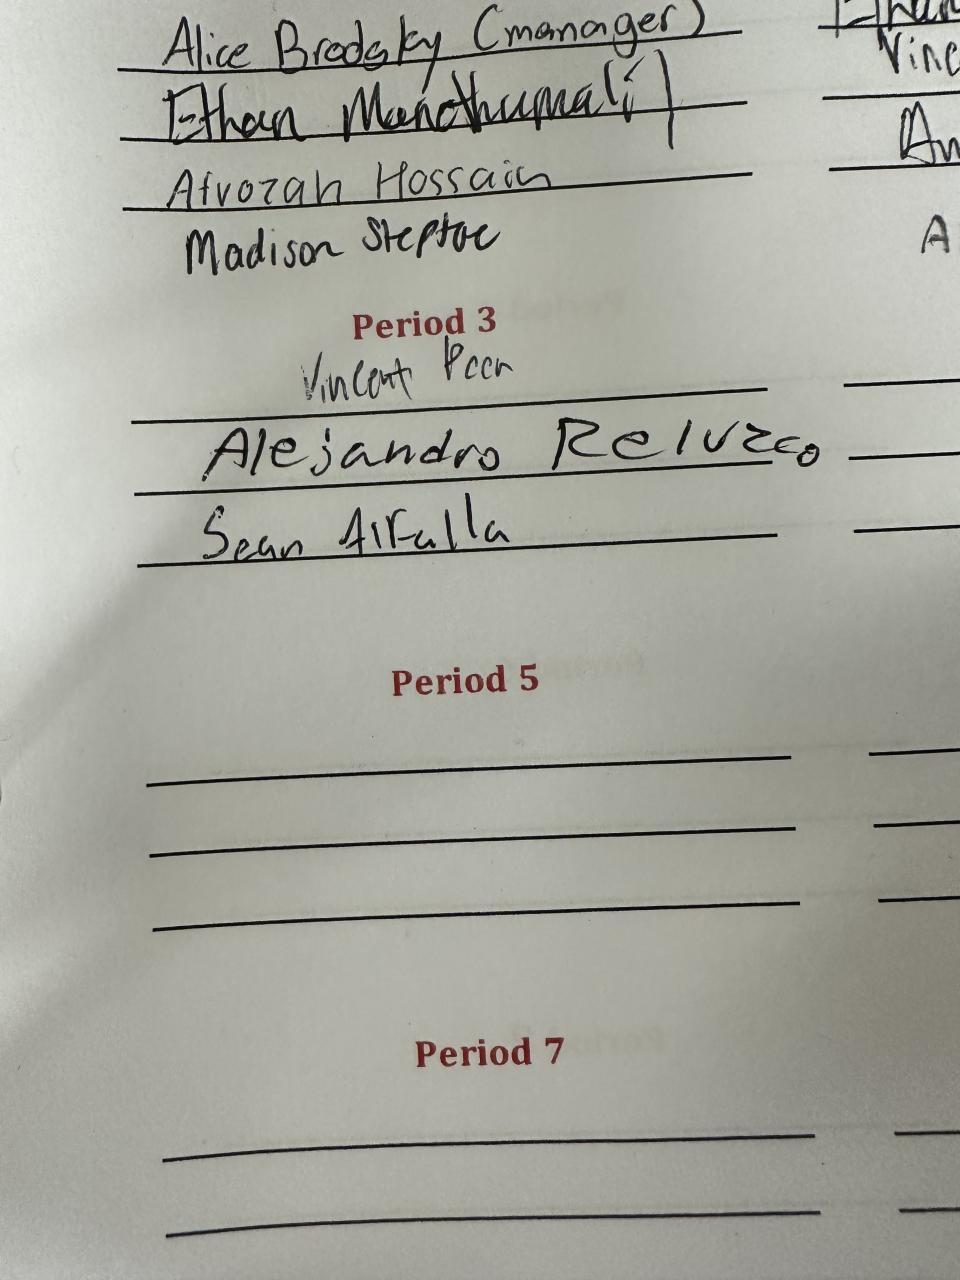 Alice Brodsky (manager)
Ethan
Ethan Manothumali
Vinc
Afrozah Hossain
An
Madison Steptoe
A
Period 3
Vincent
Alejandro Relvzco
Sean Alfalla
Period 5
Period 7